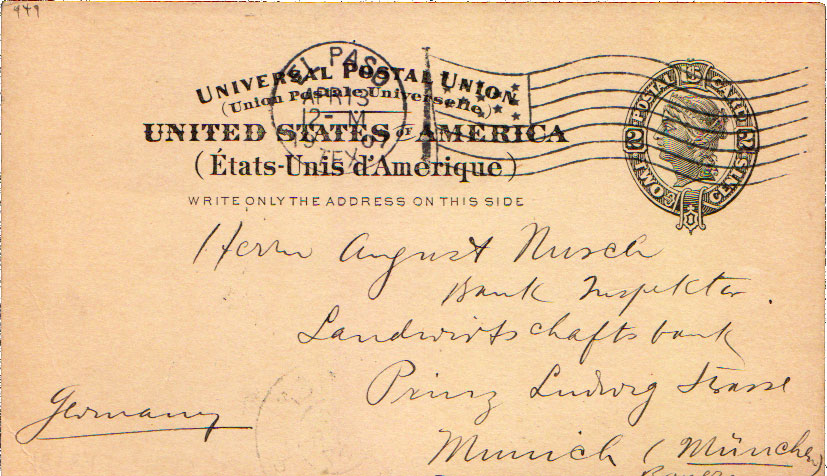 949
UNIVERSAL POSTAL UNION
(Union Postale Universelle)
UNITED STATES OF AMERICA
(États-Unis d'Amérique)
WRITE ONLY THE ADDRESS ON THIS SIDE
EL PASO
APR 13
12- M
TEX.
U.S. POSTAL CARD
2 TWO CENTS 2
Herrn August Nusch
Bank Inspektor.
Landwirtschaftsbank
Prinz Ludwig Strasse
Germany
Munich (München)